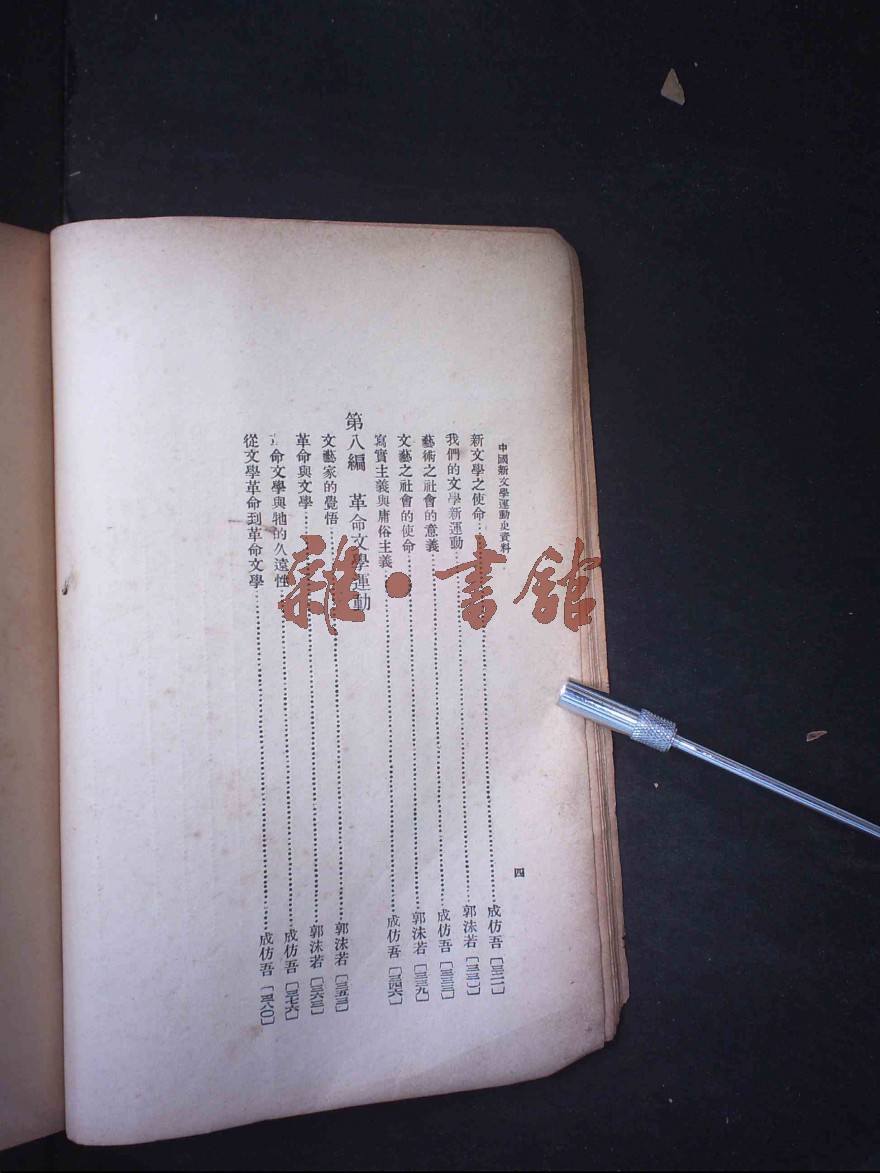 中國新文學運動史資料 四
新文學之使命……成仿吾〔三二一〕
我們的文學新運動……郭沫若〔三三一〕
藝術之社會的意義……成仿吾〔三三三〕
文藝之社會的使命……郭沫若〔三三九〕
寫實主義與庸俗主義……成仿吾〔三四六〕
第八編 革命文學運動
文藝家的覺悟……郭沫若〔三五三〕
革命與文學……郭沫若〔三六三〕
革命文學與牠的久遠性……成仿吾〔三七六〕
從文學革命到革命文學……成仿吾〔三八〇〕
雜·書館